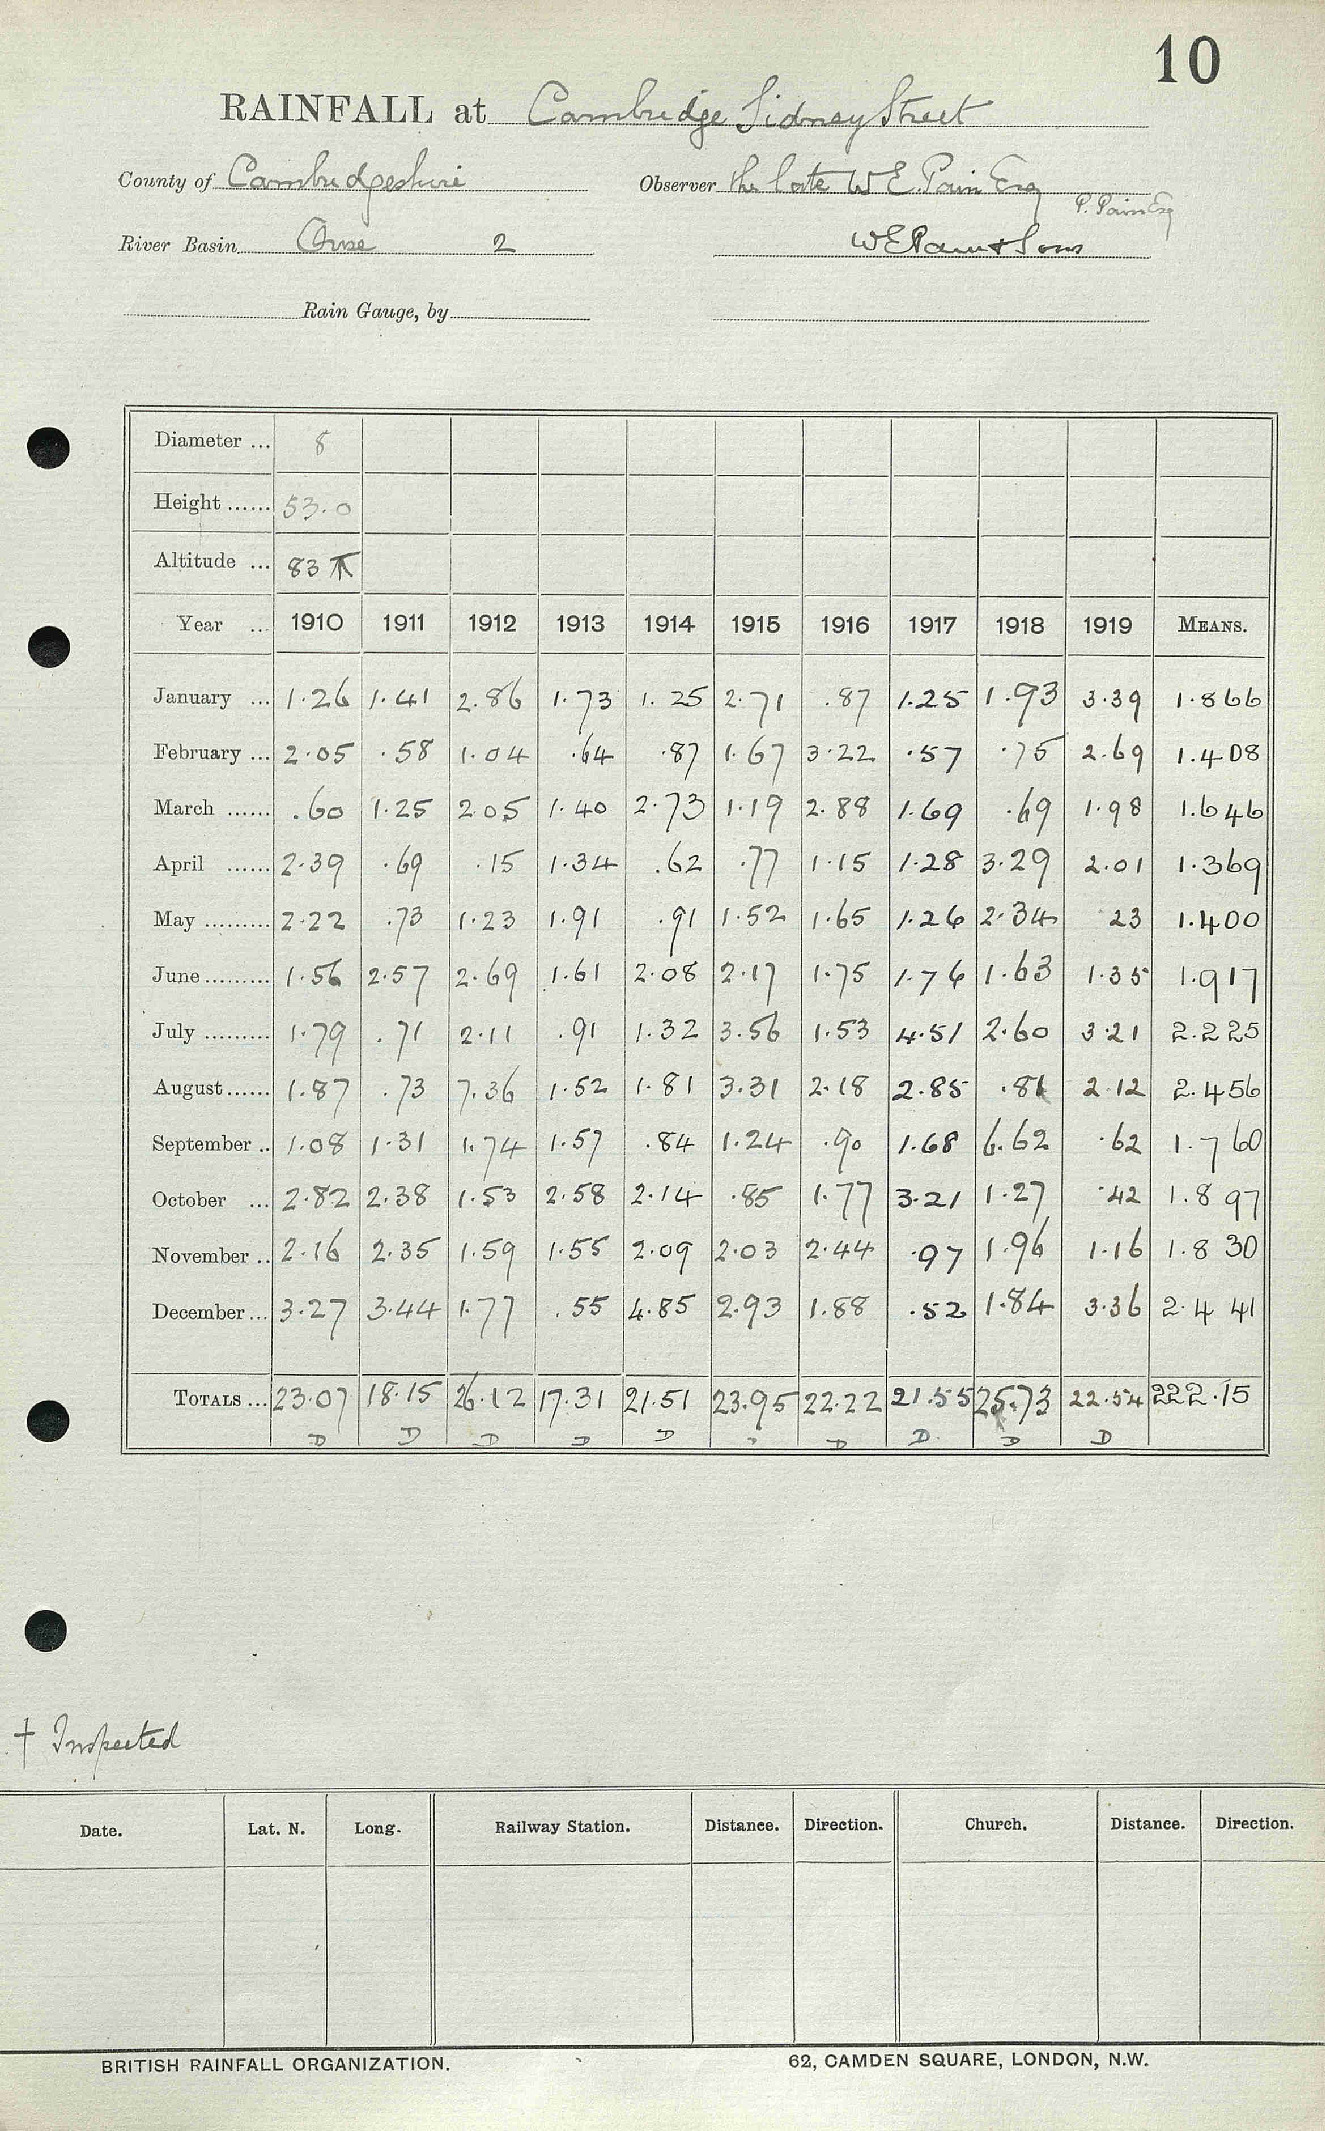 10
RAINFALL at Cambridge Sidney Street
County of Cambridgeshire Observer the late W E. Pain Esq
P. Pain Esq
River Basin Ouse 2 W E Pain & Sons
Rain Gauge, by
Diameter ... 8
Height ...... 53.0
Altitude ... 83
Year ... 1910 1911 1912 1913 1914 1915 1916 1917 1918 1919 MEANS.
January ... 1.26 1.41 2.86 1.73 1.25 2.71 .87 1.25 1.93 3.39 1.866
February ... 2.05 .58 1.04 .64 .87 1.67 3.22 .57 .75 2.69 1.408
March ...... .60 1.25 2.05 1.40 2.73 1.19 2.88 1.69 .69 1.98 1.646
April ...... 2.39 .69 .15 1.34 .62 .77 1.15 1.28 3.29 2.01 1.369
May ......... 2.22 .73 1.23 1.91 .91 1.52 1.65 1.26 2.34 .23 1.400
June ......... 1.56 2.57 2.69 1.61 2.08 2.17 1.75 1.76 1.63 1.35 1.917
July ......... 1.79 .71 2.11 .91 1.32 3.56 1.53 4.51 2.60 3.21 2.225
August ...... 1.87 .73 7.36 1.52 1.81 3.31 2.18 2.85 .81 2.12 2.456
September .. 1.08 1.31 1.74 1.57 .84 1.24 .90 1.68 6.62 .62 1.760
October ... 2.82 2.38 1.53 2.58 2.14 .85 1.77 3.21 1.27 .42 1.897
November .. 2.16 2.35 1.59 1.55 2.09 2.03 2.44 .97 1.96 1.16 1.830
December ... 3.27 3.44 1.77 .55 4.85 2.93 1.88 .52 1.84 3.36 2.441
TOTALS ... 23.07 18.15 26.12 17.31 21.51 23.95 22.22 21.55 25.73 22.54 222.15
D D D D D D D D D
† Inspected
Date. Lat. N. Long. Railway Station. Distance. Direction. Church. Distance. Direction.
BRITISH RAINFALL ORGANIZATION. 62, CAMDEN SQUARE, LONDON, N.W.